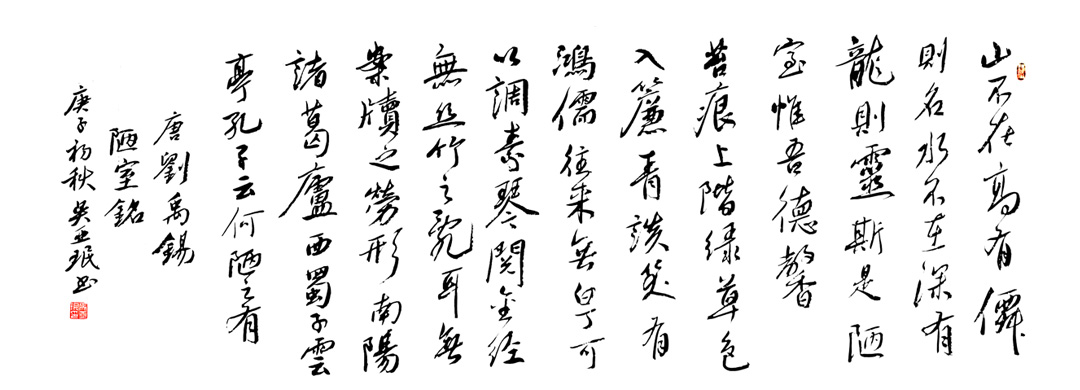 山不在高有僊
則名水不在深有
龍則靈斯是陋
室惟吾德馨
苔痕上階綠草色
入簾青談笑有
鴻儒往來無白丁可
以調素琴閱金經
無絲竹之亂耳無
案牘之勞形南陽
諸葛廬西蜀子雲
亭孔子云何陋之有
唐劉禹錫
陋室銘
庚子初秋吳亚珉书